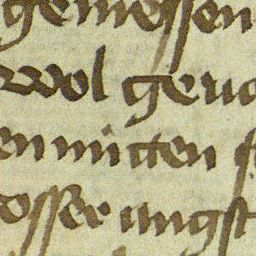 geniessen
wol geno
en mitten
osser angst